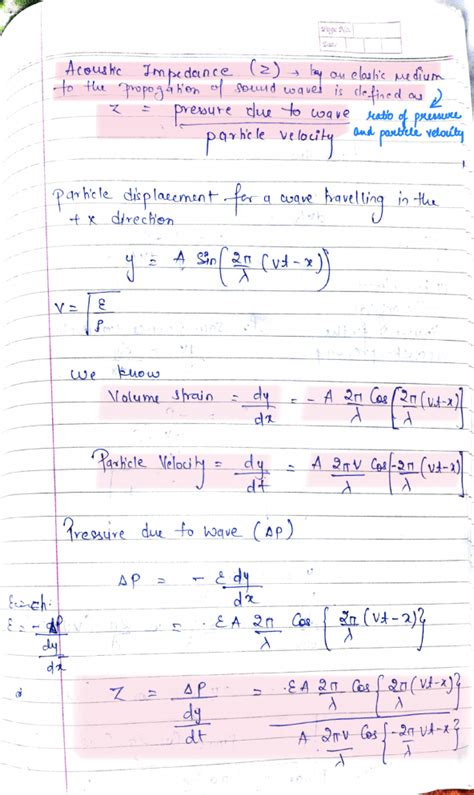 Page No.
Date
Acoustic Impedance (Z) → by an elastic medium
to the propogation of sound waves is defined as
Z = pressure due to wave / particle velocity
ratio of pressure
and particle velocity
particle displacement for a wave travelling in the
+x direction
y = A Sin(2π/λ (vt-x))
v = √(ε/ρ)
We know
Volume strain = dy/dx = -A 2π/λ Cos[2π/λ (vt-x)]
Particle Velocity = dy/dt = A 2πv/λ Cos[-2π/λ (vt-x)]
Pressure due to wave (ΔP)
ΔP = - ε dy/dx
ε = -ΔP/(dy/dx)
= εA 2π/λ Cos {2π/λ (vt-x)}
Z = ΔP/(dy/dt) = εA 2π/λ Cos {2π/λ (vt-x)} / A 2πv/λ Cos {-2π/λ vt-x}